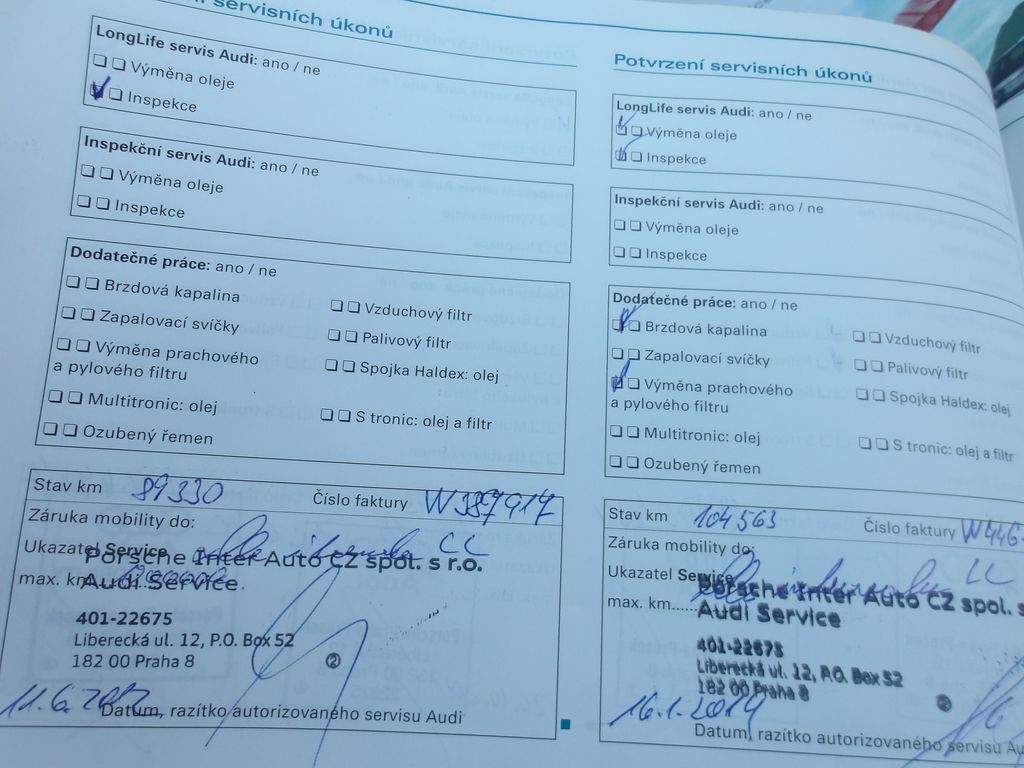 servisních úkonů
LongLife servis Audi: ano / ne
Výměna oleje
Inspekce
Inspekční servis Audi: ano / ne
Výměna oleje
Inspekce
Dodatečné práce: ano / ne
Brzdová kapalina
Vzduchový filtr
Zapalovací svíčky
Palivový filtr
Výměna prachového
a pylového filtru
Spojka Haldex: olej
Multitronic: olej
S tronic: olej a filtr
Ozubený řemen
Stav km 89330 Číslo faktury W387917
Záruka mobility do:
Ukazatel Service
max. km
Porsche Inter Auto CZ spol. s r.o.
Audi Service
401-22675
Liberecká ul. 12, P.O. Box 52
182 00 Praha 8
2
11.6.2012
Datum, razítko autorizovaného servisu Audi
Potvrzení servisních úkonů
LongLife servis Audi: ano / ne
Výměna oleje
Inspekce
Inspekční servis Audi: ano / ne
Výměna oleje
Inspekce
Dodatečné práce: ano / ne
Brzdová kapalina
Vzduchový filtr
Zapalovací svíčky
Palivový filtr
Výměna prachového
a pylového filtru
Spojka Haldex: olej
Multitronic: olej
S tronic: olej a filtr
Ozubený řemen
Stav km 104563 Číslo faktury W446-
Záruka mobility do:
Ukazatel Service
max. km......
Porsche Inter Auto CZ spol. s
Audi Service
401-22675
Liberecká ul. 12, P.O. Box 52
182 00 Praha 8
2
16.1.2014
Datum, razítko autorizovaného servisu Au